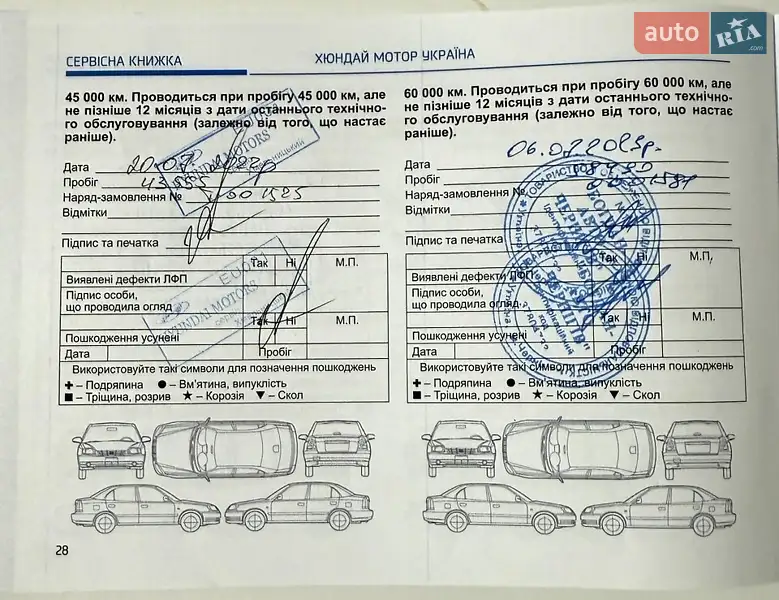 auto RIA.com
СЕРВІСНА КНИЖКА
ХЮНДАЙ МОТОР УКРАЇНА
45 000 км. Проводиться при пробігу 45 000 км, але
не пізніше 12 місяців з дати останнього технічно-
го обслуговування (залежно від того, що настає
раніше).
Дата
Пробіг
Наряд-замовлення №
Відмітки
Підпис та печатка
HYUNDAI MOTORS
Так Ні М.П.
Виявлені дефекти ЛФП
Підпис особи,
що проводила огляд
HYUNDAI MOTORS
Так Ні М.П.
Пошкодження усунені
Дата Пробіг
Використовуйте такі символи для позначення пошкоджень
✚ – Подряпина ● – Вм'ятина, випуклість
■ – Тріщина, розрив ★ – Корозія ▼ – Скол
60 000 км. Проводиться при пробігу 60 000 км, але
не пізніше 12 місяців з дати останнього технічно-
го обслуговування (залежно від того, що настає
раніше).
Дата
Пробіг
Наряд-замовлення №
Відмітки
Підпис та печатка
Так Ні М.П.
Виявлені дефекти ЛФП
Підпис особи,
що проводила огляд
Так Ні М.П.
Пошкодження усунені
Дата Пробіг
Використовуйте такі символи для позначення пошкоджень
✚ – Подряпина ● – Вм'ятина, випуклість
■ – Тріщина, розрив ★ – Корозія ▼ – Скол
28